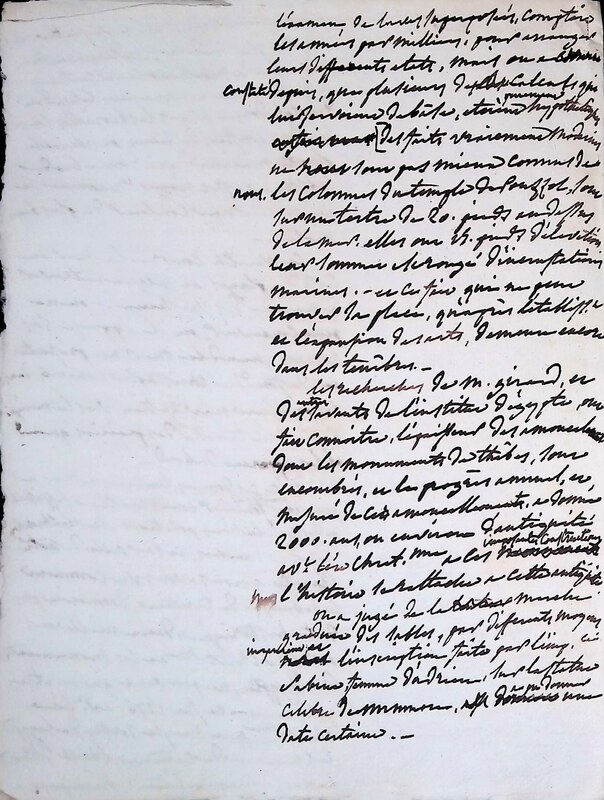 l'examen de laves superposées, compter
les années par milliers, pour arranger
leurs differents etats, mais on a
constaté depuis, que plusieurs des calculs qui
lui servoient de base, etoient hypothetiques
des faits vraiement modernes
ne sont pas mieux connus de
nous. les colonnes du temple de Pouzzol, sont
sur un tertre de 20. pieds au dessus
de la mer. elles ont pieds d'élévation
leur sommet est rongé d'incrustations
marines. — et ce fait qui ne peut
trouver sa place, qu'après l'etabliss.t
et l'expansion des arts, demeure encore
dans les tenèbres. —
les recherches de M. gérard, et
des autres savants de l'institut d'égypte, ont
fait connoitre, l'épaisseur des amoncelements
dont les monuments de thèbes, sont
encombrés, et les progrès annuel, et
mesuré de ces amoncellements, a donné
2000. ans, ou environ d'antiquité
av.t Christ. a ces importantes constructions
l'histoire se rattache a cette antiquité
on a jugé de la marche
graduée des sables, par differents moyens
l'inscription faite par
Sabine femme d'adrien, sur la statue
celebre de memnon, a pu donner une
date certaine. —